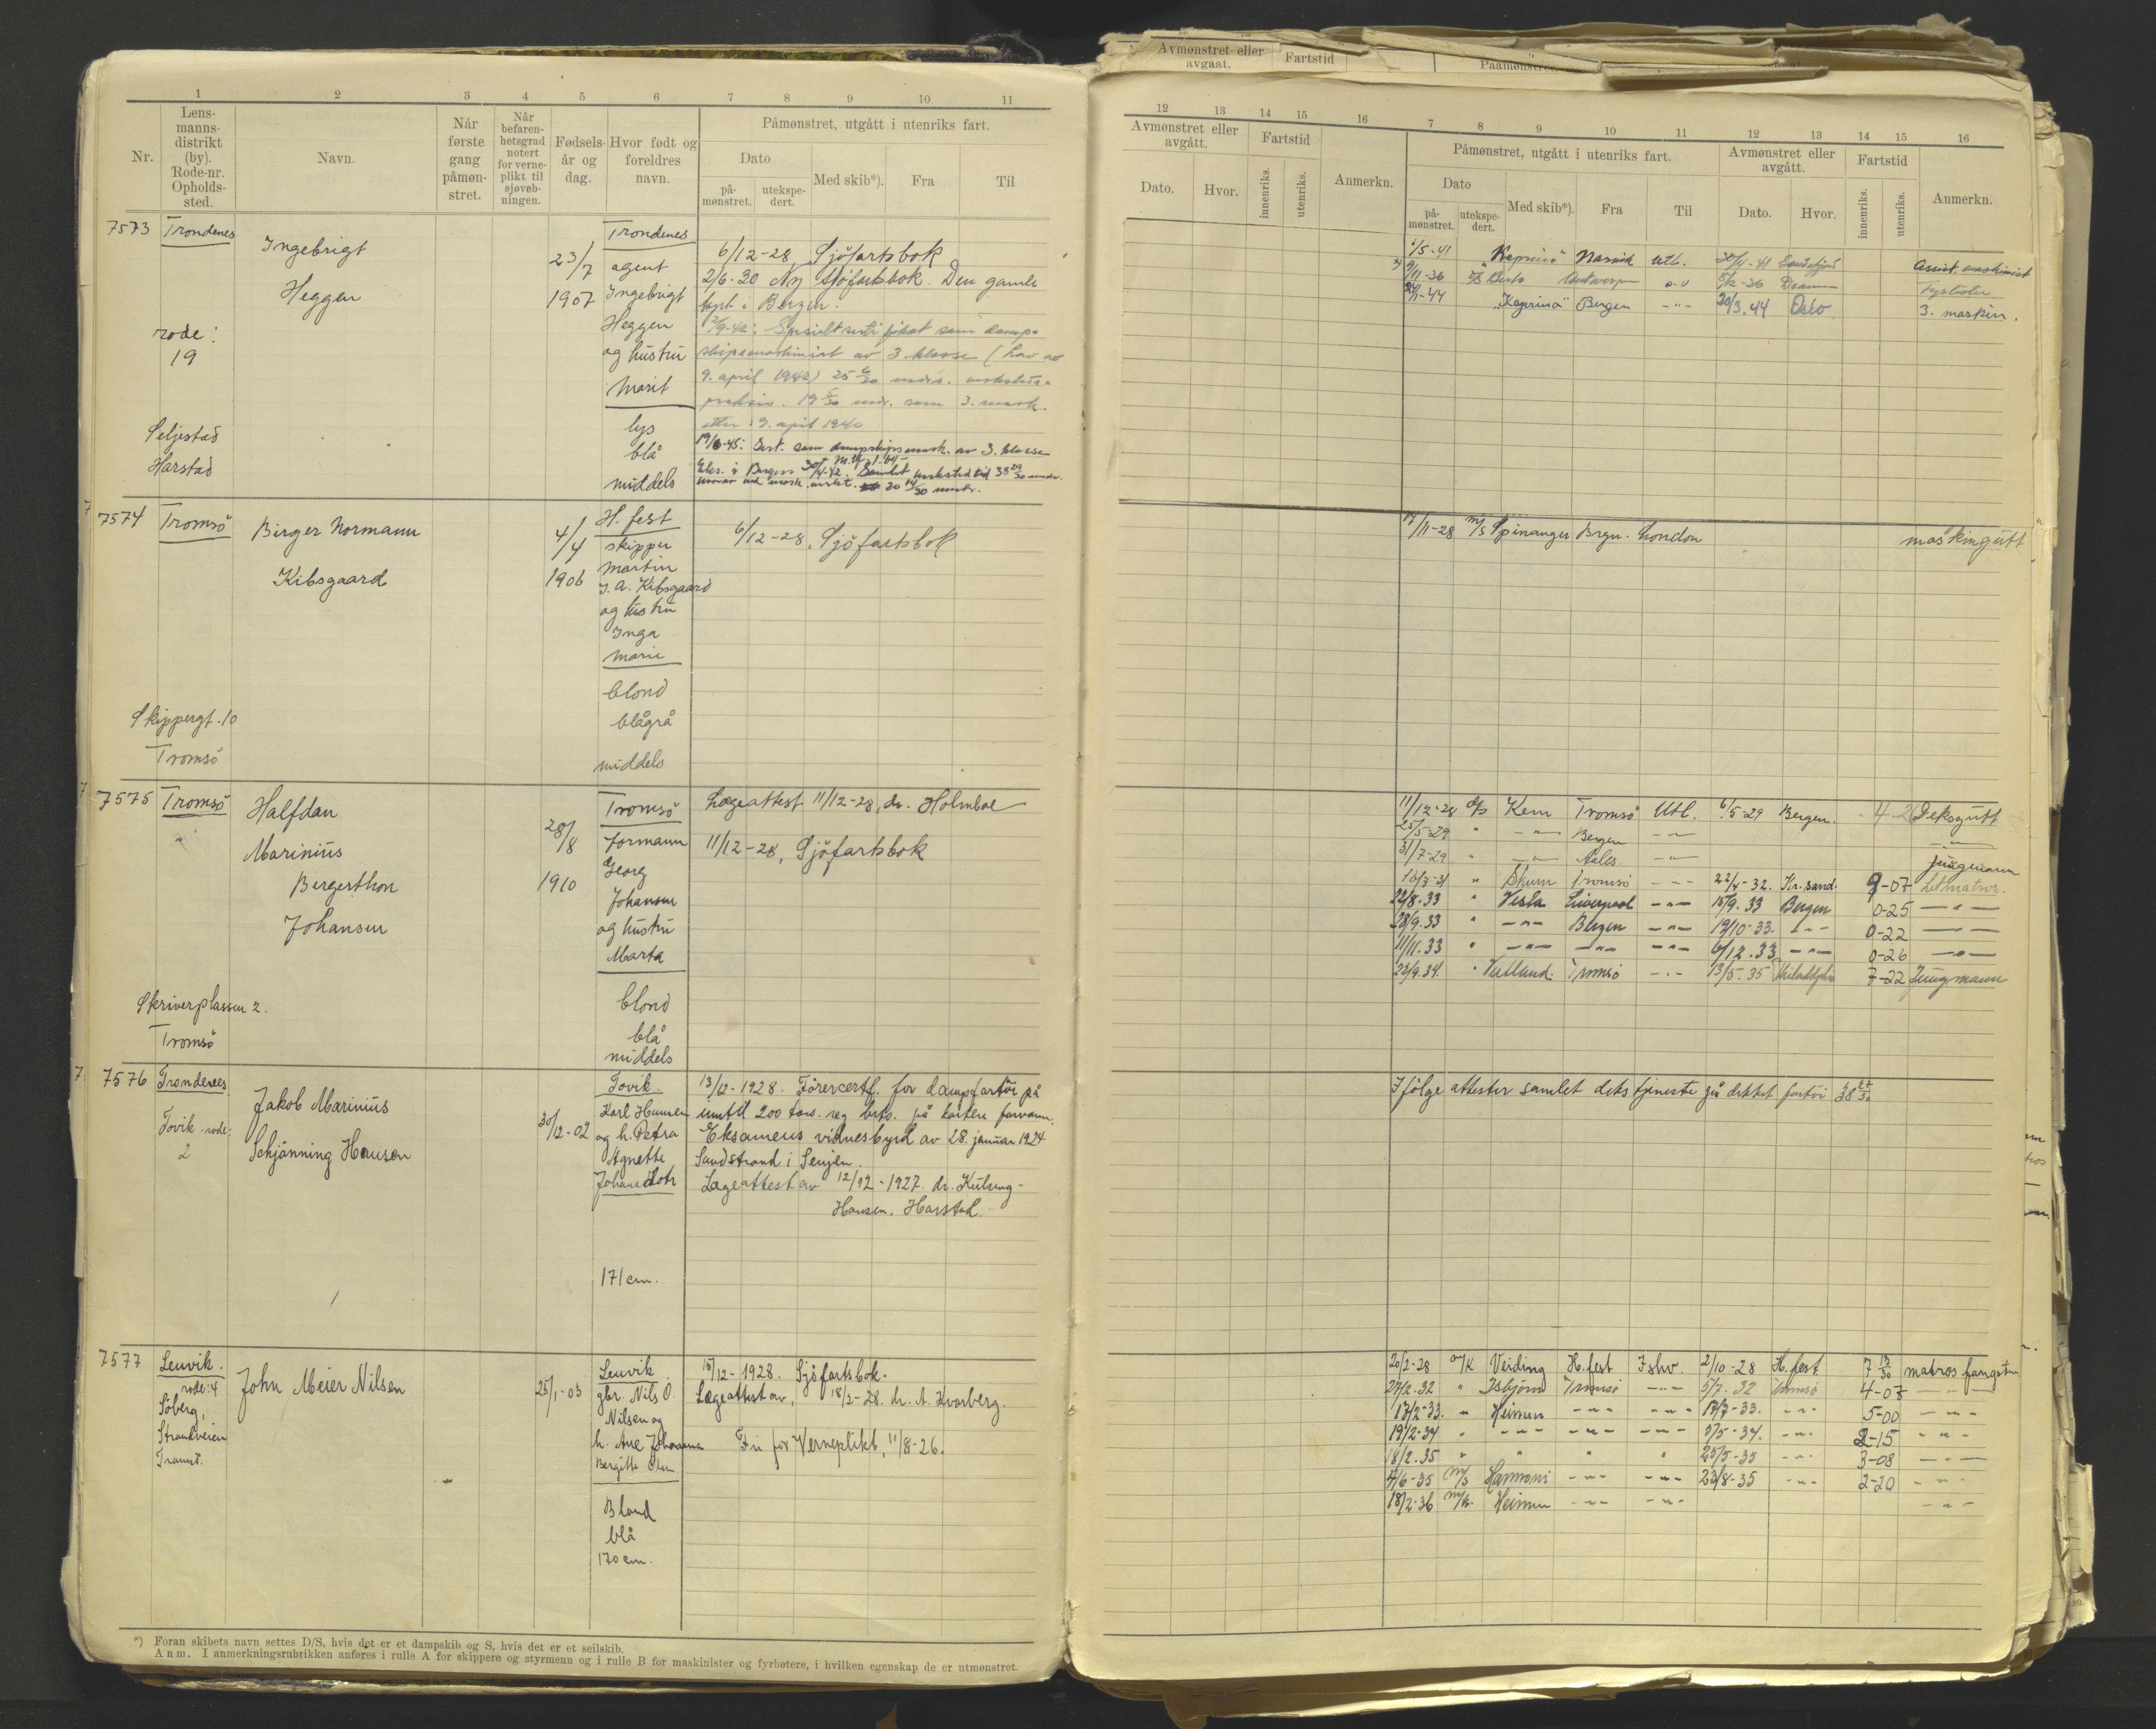 1 2 3 4 5 6 7 8 9 10 11
Nr.
Lens-
manns-
distrikt
(by).
Rode-nr.
Opholds-
sted.
Navn.
Når
første
gang
påmøn-
stret.
Når
befaren-
hetsgrad
notert
for verne-
plikt til
sjøveb-
ningen.
Fødsels-
år og
dag.
Hvor født og
foreldres
navn.
Påmønstret, utgått i utenriks fart.
Dato
på-
mønstret.
utekspe-
dert.
Med skib*).
Fra
Til
7573 Trondenes
Ingebrigt
Heggen
rode:
19
Seljestad
Harstad
23/7
1907
Trondenes
agent
Ingebrigt
Heggen
og hustru
Marit
lys
blå
middels
6/12-28, Sjöfartsbok
2/6-30 Ny sjöfartsbok. Den gamle
tapt i Bergen.
skipsmaskinist av 3 klasse (Lov av
9. april 1942) 25 6/30 mdrs. verksteds-
praksis. 19 5/30 mdr. som 3. mask.
etter 9. april 1940
19/6-45: Sert. som dampskipsmask. av 3. klasse
7574 Tromsö
Birger Normann
Kibsgaard
Skippergt. 10
Tromsö
4/4
1906
H. fest
skipper
Martin
J. A. Kibsgaard
og hustru
Inga
Marie
blond
blågrå
middels
6/12-28, Sjöfartsbok
7575 Tromsö
Halfdan
Marinius
Bergersthon
Johansen
Skriverplassen 2.
Tromsö
28/8
1910
Tromsö
formann
Georg
Johansen
og hustru
Marta
blond
blå
middels
Lægeattest 11/12-28, dr. Holmboe
11/12-28, Sjöfartsbok
7576 Trondenes
Tovik rode:
2
Jakob Marinius
Schjönning Hansen
30/12-02
Tovik.
Karl Hansen
og h. Petra
Agnette
Johansdotr
171 cm.
13/12-1928. Förercertf. for dampfartöi på
inntil 200 tons. reg. brto. på kortere farvann.
Eksamens vidnesbyrd av 28. januar 1924
Sandstrand i Senjen.
Lægeattest av 12/12-1927. dr.
Hansen. Harstad.
7577 Lenvik.
rode: 4
Söberg,
Strandveien
Tromsö.
John Meier Nilsen
25/1-03
Lenvik
gbr. Nils O.
Nilsen og
h. Ane Johanna
Bergitte Olsen
Blond
blå
170 cm.
15/12-1928. Sjöfartsbok.
Lægeattest av, 18/2-28. dr. A. Kvarberg.
Fri for Verneplikt, 11/8-26.
*) Foran skibets navn settes D/S, hvis det er et dampskib og S, hvis det er et seilskib.
Anm. I anmerkningsrubrikken anføres i rulle A for skippere og styrmenn og i rulle B for maskinister og fyrbøtere, i hvilken egenskap de er utmønstret.
Avmønstret eller
avgaat.
Fartstid
12 13 14 15 16 7 8 9 10 11 12 13 14 15 16
Avmønstret eller
avgått.
Dato.
Hvor.
Fartstid
innenriks.
utenriks.
Anmerkn.
Påmønstret, utgått i utenriks fart.
Dato
på-
mønstret.
utekspe-
dert.
Med skib*).
Fra
Til
Avmønstret eller
avgått.
Dato.
Hvor.
Fartstid
innenriks.
utenriks.
Anmerkn.
/5-41 Narvik Utl. Assist. maskinist
/11-36 Antwerpen /12-36
/1-44 "Kaprino" Bergen -"- 20/3.44 Oslo 3. maskin.
/11-28 m/s Spinanger Brgn. London maskingutt
11/12-28 d/s Kem Tromsö Utl. 6/5-29 Bergen. 4-26 Deksgutt
25/5-29 " -"- Bergen -"- -"-
31/7-29 " -"- Aales. -"- jungmann
" Skum Tromsö -"- 22/4-32. Kr.sand. 9-07 Letmatros.
22/8.33 " Vesla Liverpool -"- 15/9.33 Bergen 0-25 -"-
28/9.33 " -"- Bergen -"- 19/10-33. -"- 0-22 -"-
11/11.33 " -"- -"- -"- 6/12.33 -"- 0-26 -"-
22/9.34. " Tromsö -"- 13/5.35 Philadelphia 7-22 Jungmann
Ifölge attester samlet dekstjeneste på dekket fartöi 38 27/30
20/2-28 m/k Veiding H.fest Ishv. 2/10-28 H.fest 7 13/30 matros fangstm
27/2.32 " Isbjörn Tromsö -"- 5/7-32 Tromsö 4-08 -"-
17/2-33. " Heimen -"- -"- 17/7-33. -"- 5-00 -"-
19/2-34 " -"- -"- -"- 3/5-34. -"- 2-15 -"-
18/2.35 " " " " 25/5-35 -"- 3-08 -"-
4/6-35 m/s Harmoni -"- -"- 23/8-35 -"- 2-20 -"-
18/2-36 m/k. Heimen -"- -"- -"-